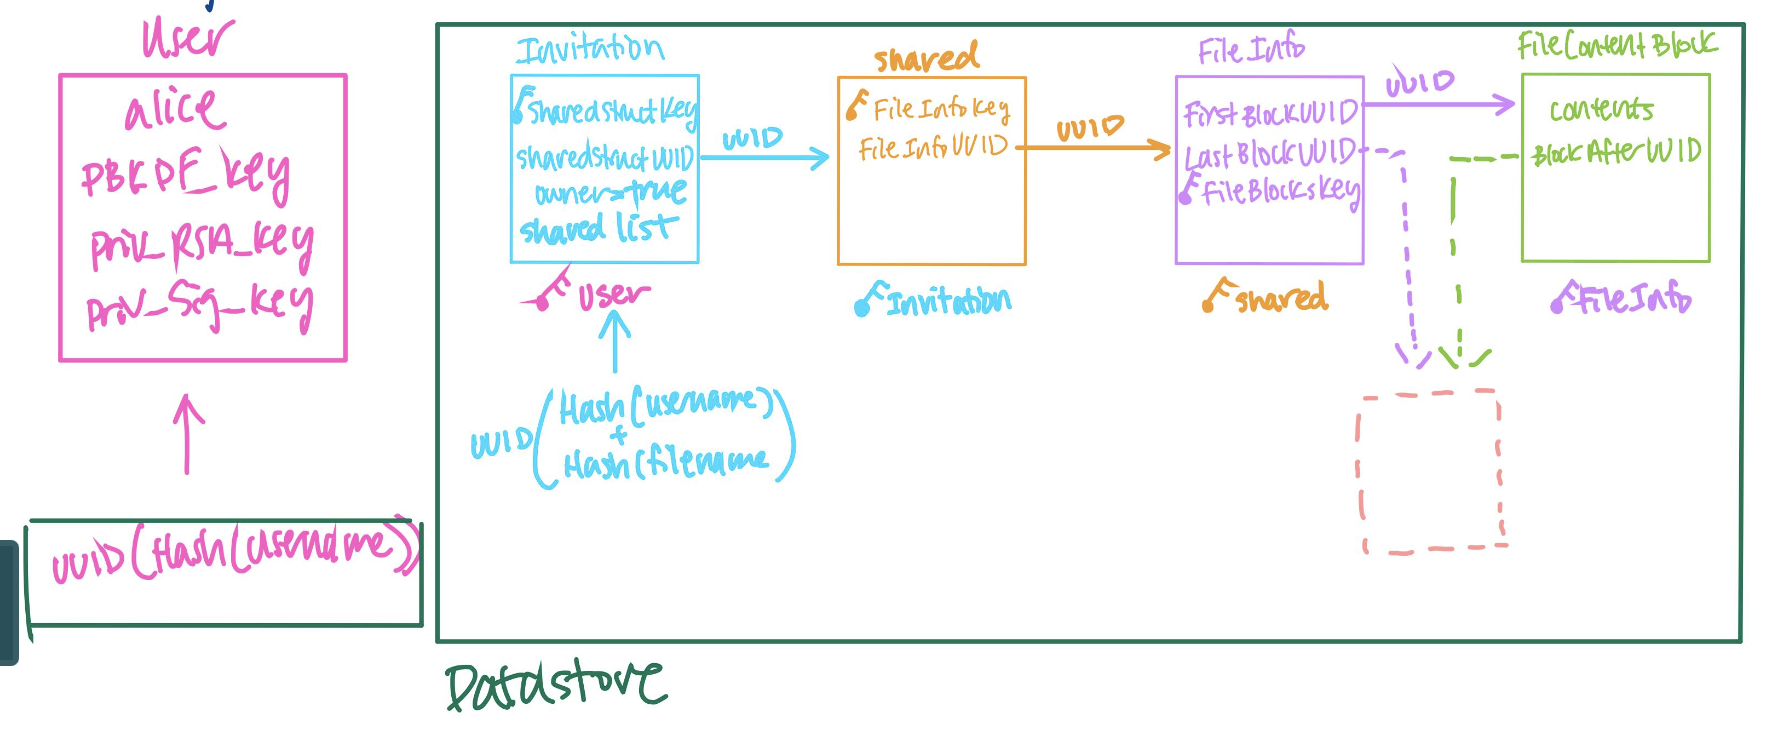 User
alice
PBKDF_key
priv_RSA_key
priv_Sig_key
UUID(Hash(username))
Invitation
SharedstructKey
sharedstructUUID
owner=true
shared list
User
UUID
UUID(Hash(username)
+
Hash(filename)
shared
FileInfoKey
FileInfoUUID
Invitation
UUID
FileInfo
FirstBlockUUID
LastBlockUUID
FileBlocksKey
shared
UUID
FileContentBlock
contents
BlockAfterUUID
FileInfo
Datastore